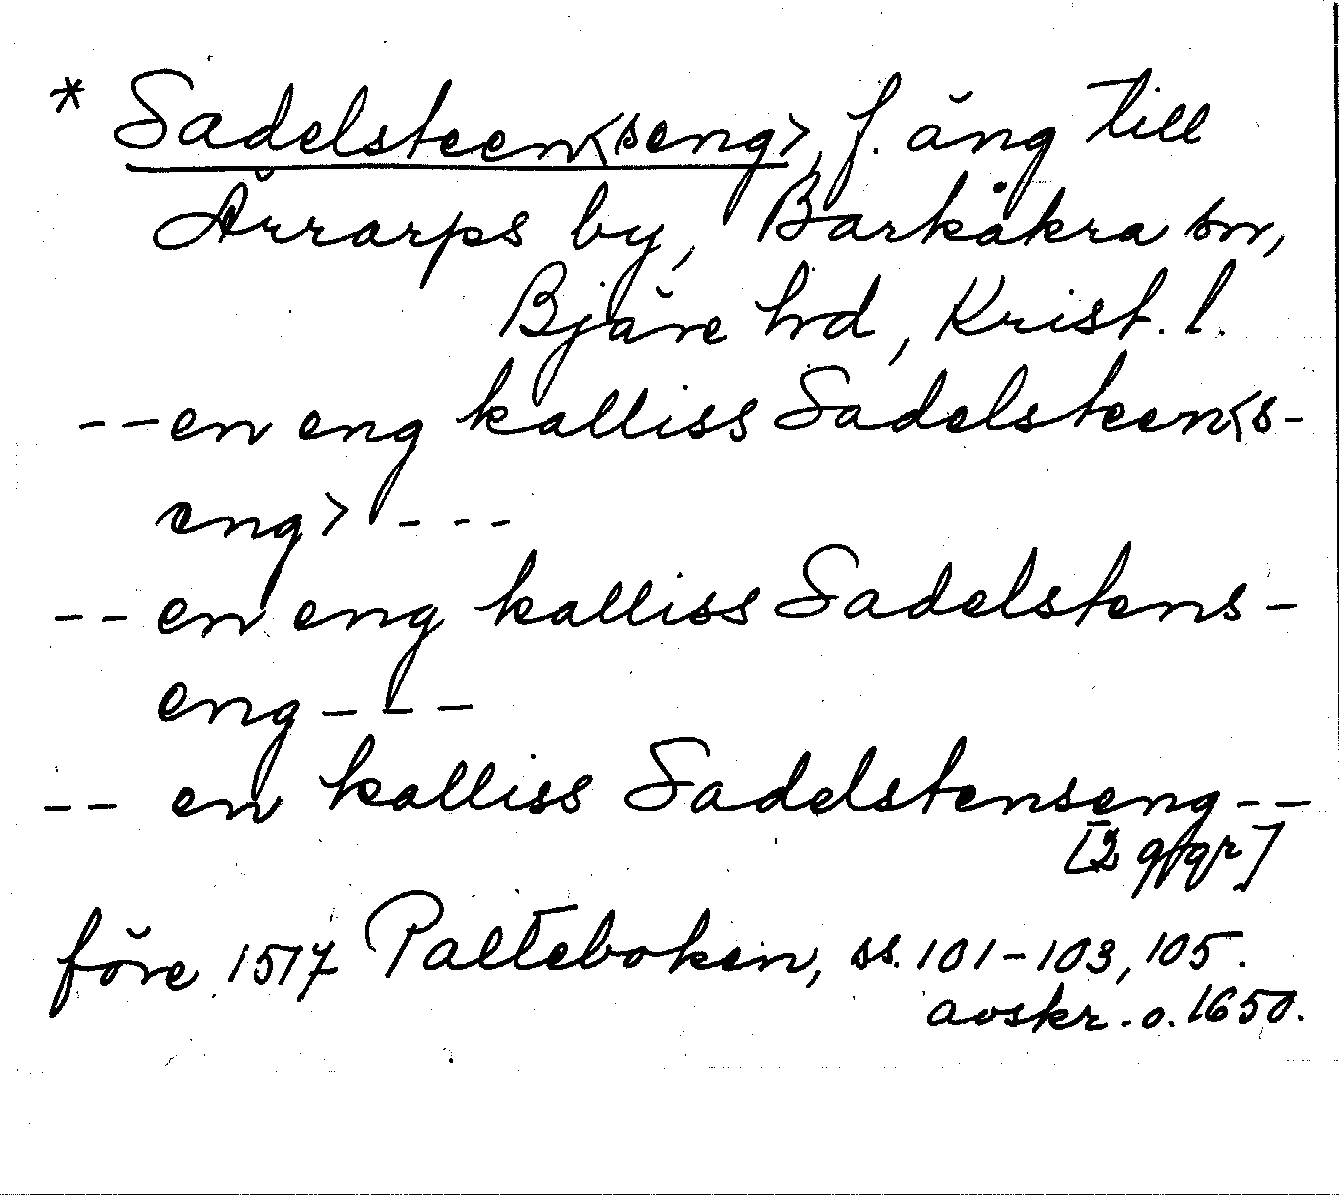 * Sadelsteen<seng>, f. äng till
Ärrarps by, Barkåkra sn,
Bjäre hd, Krist. l.
-- en eng kalliss Sadelsteen<s-
eng> ---
-- en eng kalliss Sadelstens-
eng ---
-- en kalliss Sadelstenseng --
[2 ggr]
före 1517 Palteboken, ss. 101-103, 105.
avskr. o. 1650.